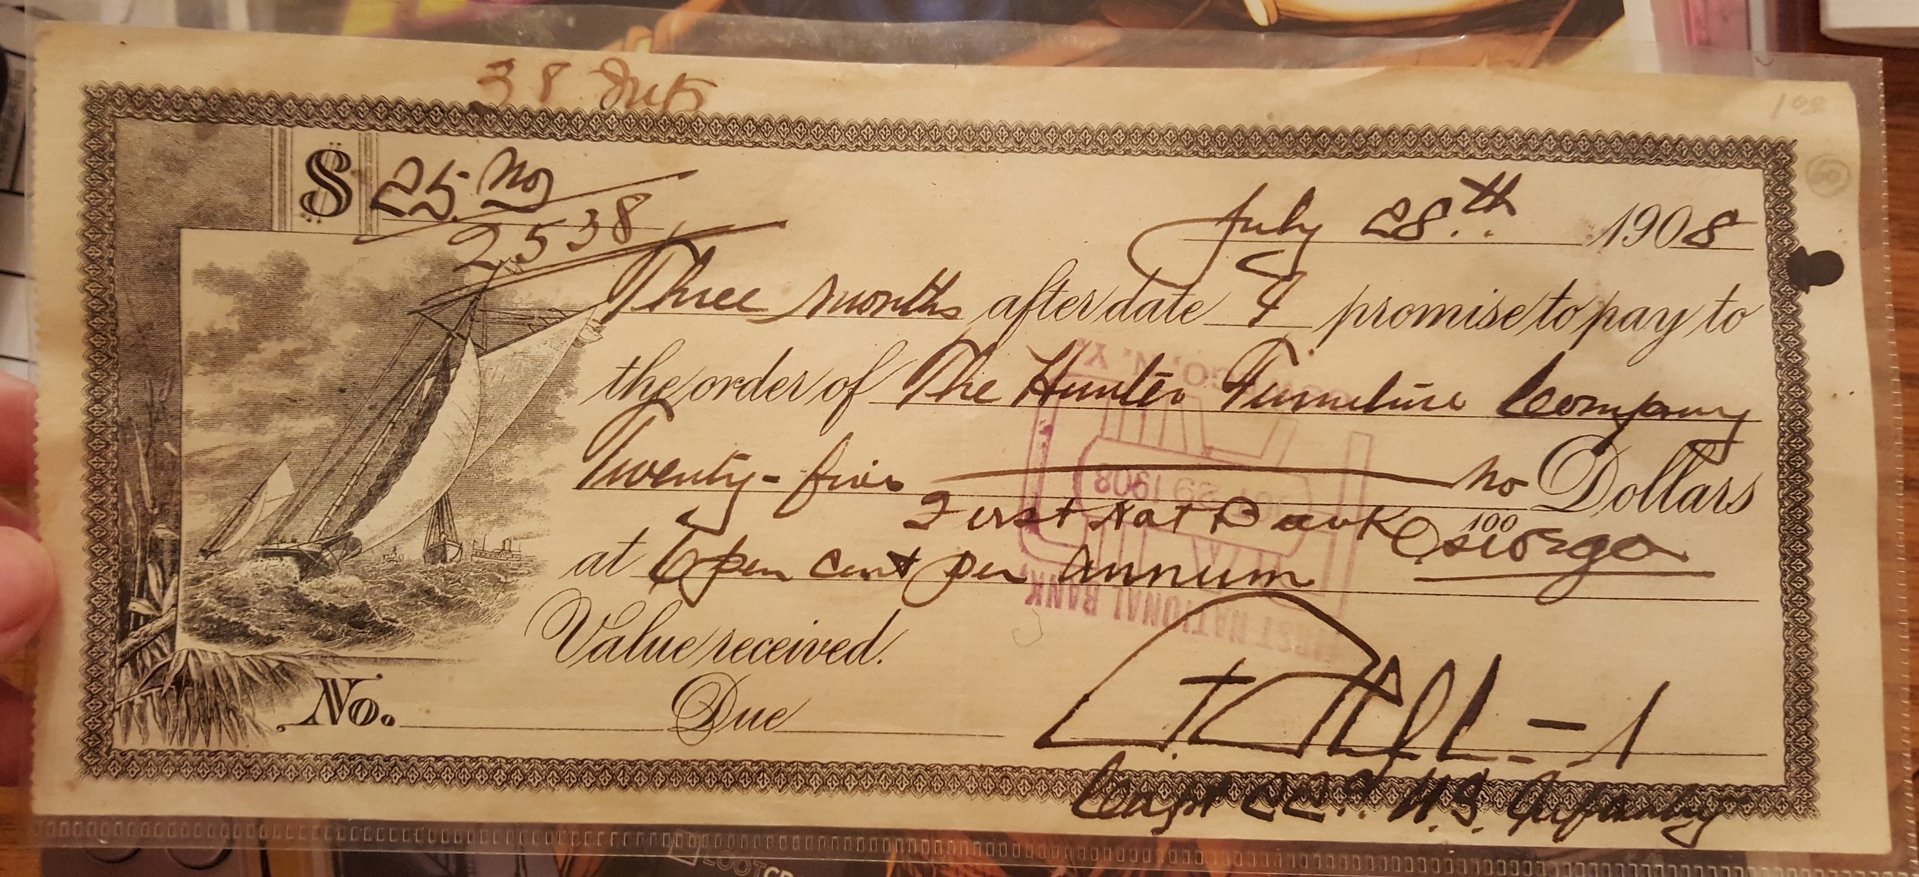 38 Ints
$ 25. no
25 38
July 28.th 1908
Three months after date I promise to pay to
the order of The Hunter Furniture Company
Twenty-five no/100 Dollars
First Nat Bank Oswego
at 6 per cent per annum
Value received.
No. Due
Capt 22nd U.S. Infantry
OSWEGO, N. Y.
PAID
29 1908
FIRST NATIONAL BANK,